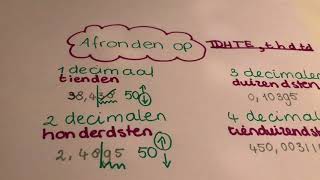 Afronden op
DHTE, t h d td
1 decimaal
tienden
50
2 decimalen
honderdsten
2, 4895 50
3 decimalen
duizendsten
0,10395
4 decimalen
tienduizendsten
450,00311